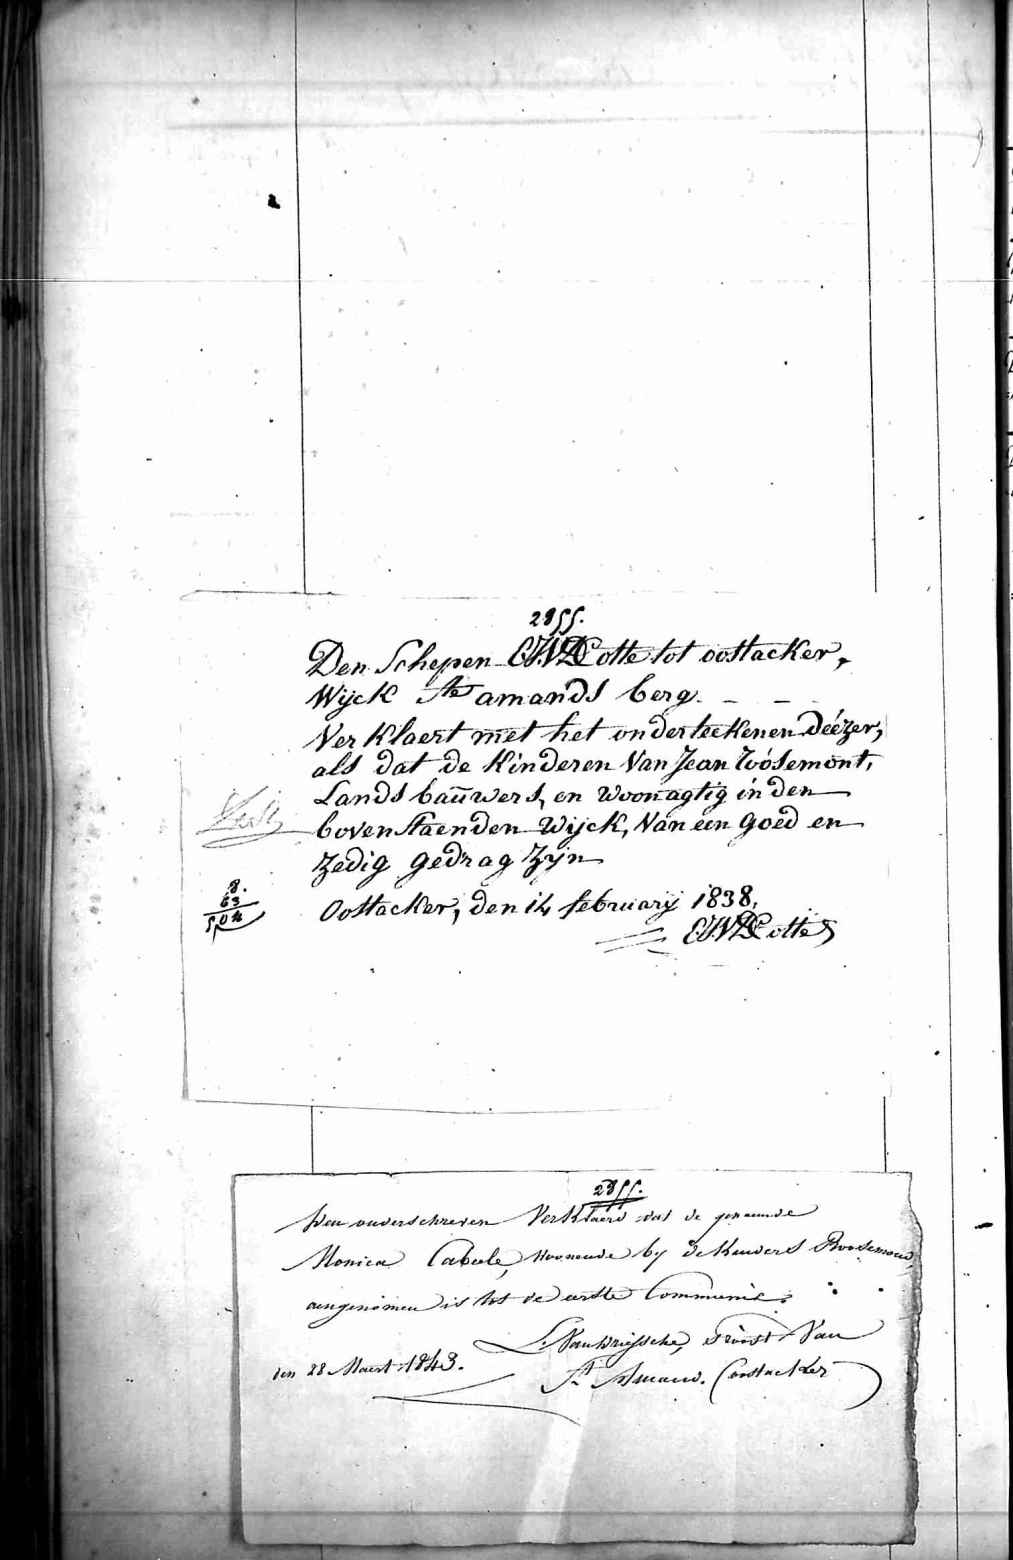 2955.
Den Schepen Cotte tot oostacker,
Wijck Ste amands berg. - - -
Verklaert met het onderteekenen deézer,
als dat de kinderen Van Jean Roósemont,
Lands baüwers, en woonagtig in den
bovenstaenden Wijck, Van een goed en
zedig gedrag zyn
8.
63
504
Oostacker, den 14 february 1838,
Cotte
2955.
Den onderschreven Verklaerd dat de genaemde
Monica Cabeele, woonende by de kinders Roosemond
aengenomen is tot de eerste Communie.
L. Vandriessche, proost Van
den 28 Maert 1843.
St Amand. Oostacker